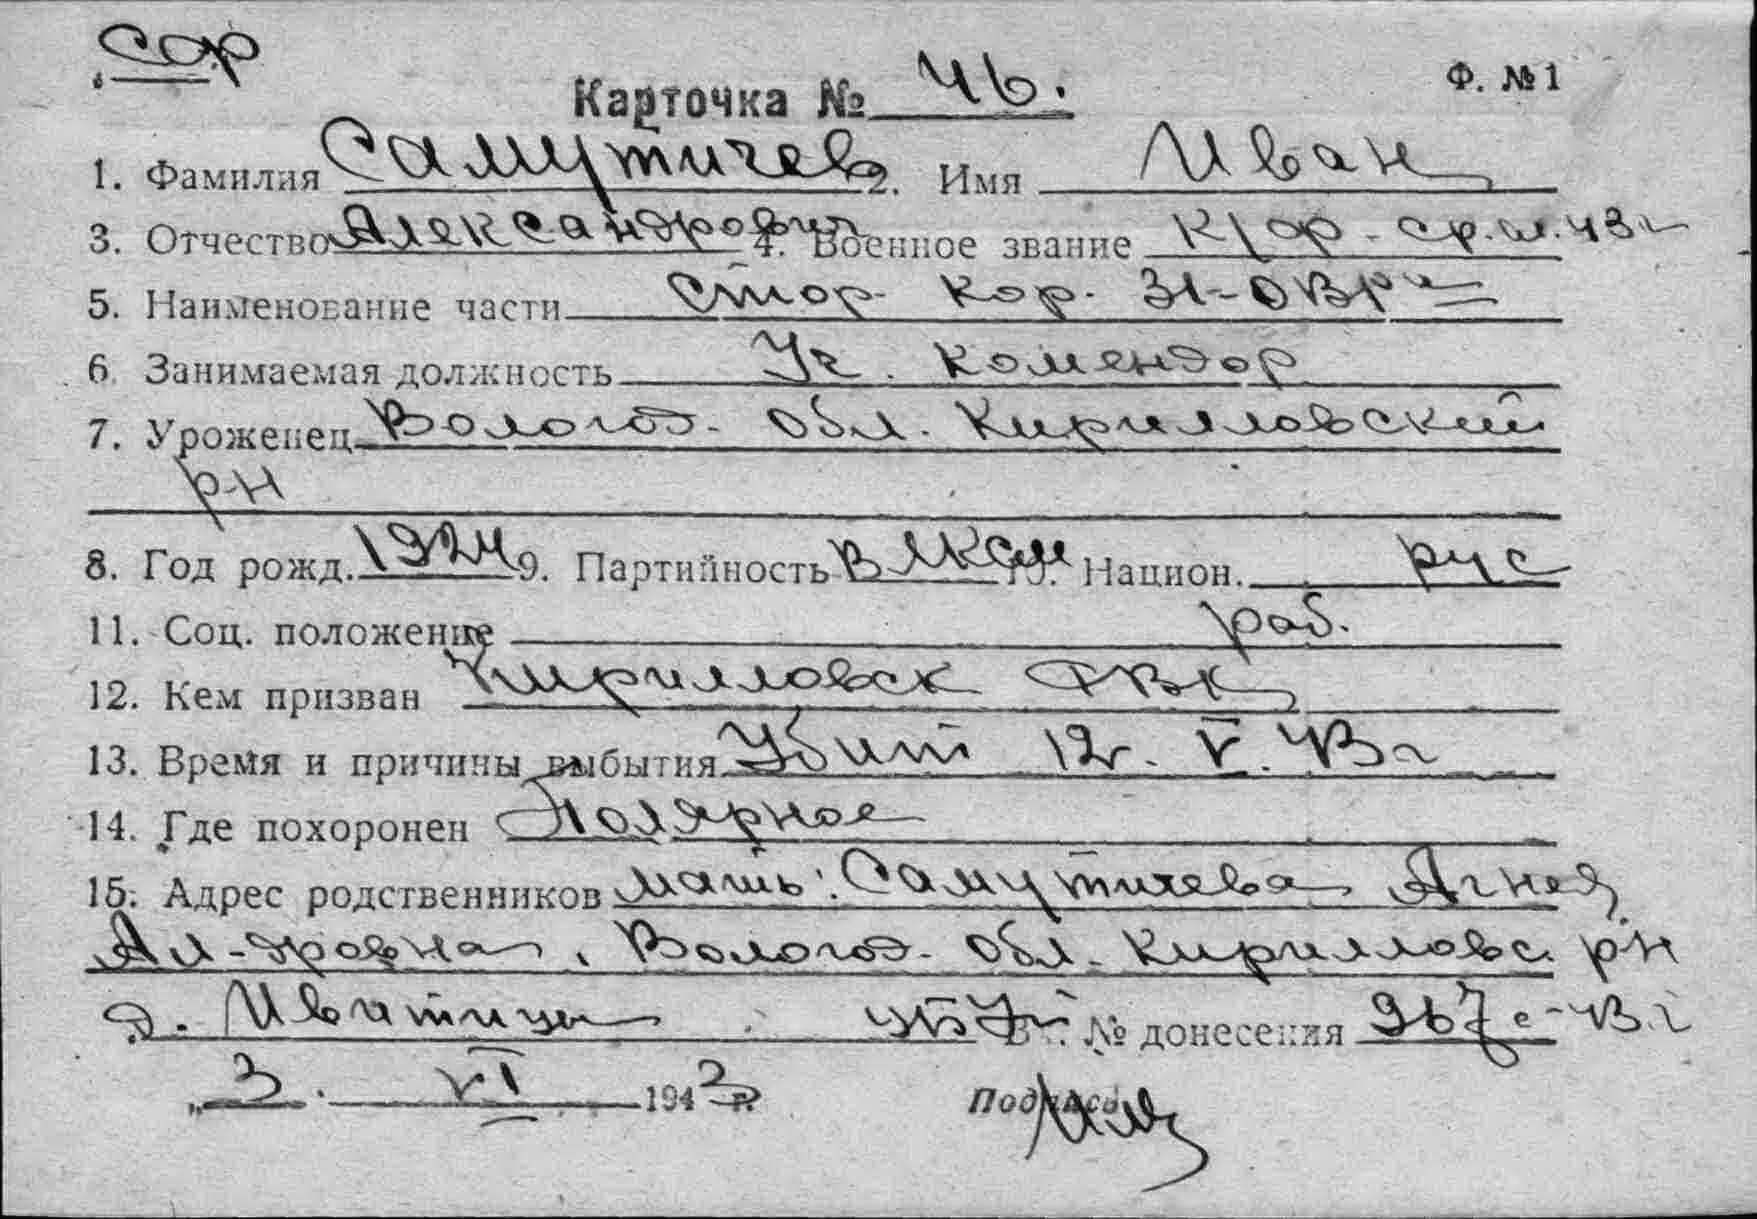 Карточка № 46. Ф. №1
1. Фамилия Самутичев 2. Имя Иван
3. Отчество Александрович 4. Военное звание К/фр. ср. 43 г
5. Наименование части Стор. кор. 31 - ОВРа
6. Занимаемая должность Уч. комендор
7. Уроженец Вологод. обл. Кирилловский
р-н
8. Год рожд. 1924 9. Партийность ВЛКСМ 10. Национ. рус
11. Соц. положение раб.
12. Кем призван Кирилловск РВК
13. Время и причины выбытия Убит 12. V. 43 г
14. Где похоронен Полярное
15. Адрес родственников мать: Самутичева Агнея
Ал-дровна, Вологод. обл. Кирилловс. р-н
д. № донесения 967с - 43 г
„ 3. VI 1943 г.
Подпись